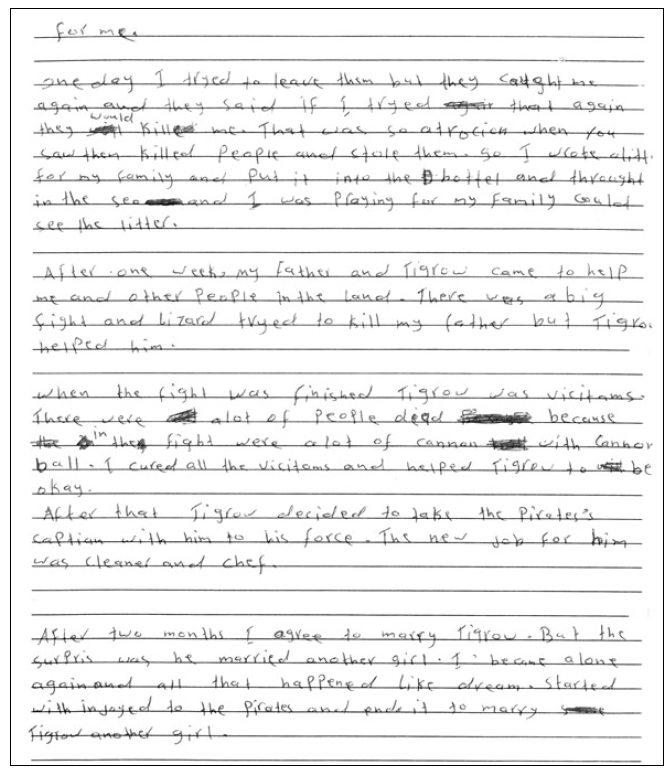 for me.
one day I tryed to leave them but they caught me
again and they said if I tryed that again
they would kill me. That was so atrocien when you
saw then killed people and stole them. So I wrote a litt.
for my family and put it into the bottel and throught
in the sea and I was praying for my family could
see the litter.
After one week, my father and Tigrow came to help
me and other people in the land. There was a big
fight and Lizard tryed to kill my father but Tigro.
helped him.
when the fight was finished Tigrow was vicitams.
There were alot of people dead because
in the fight were alot of cannan with Cannor
ball. I cured all the vicitams and helped Tigrow to be
okay.
After that Tigrow decided to take the pirates's
caption with him to his force. The new job for him
was cleaner and chef.
After two months I agree to marry Tigrow. But the
surpris was he married another girl. I became alone
again and all that happened like dream. started
with injoyed to the pirates and ende it to marry
Tigrow another girl.